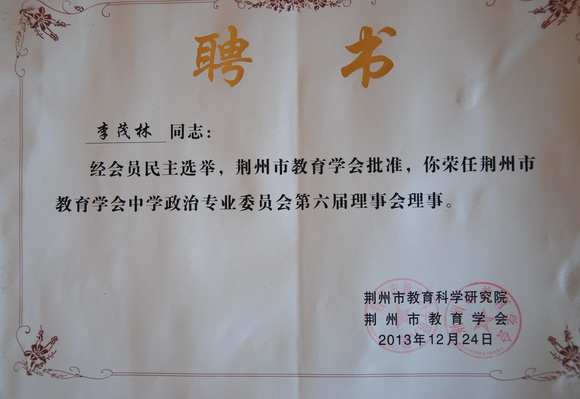 聘 书
李茂林 同志：
经会员民主选举，荆州市教育学会批准，你荣任荆州市
教育学会中学政治专业委员会第六届理事会理事。
荆州市教育科学研究院
荆州市教育学会
2013年12月24日